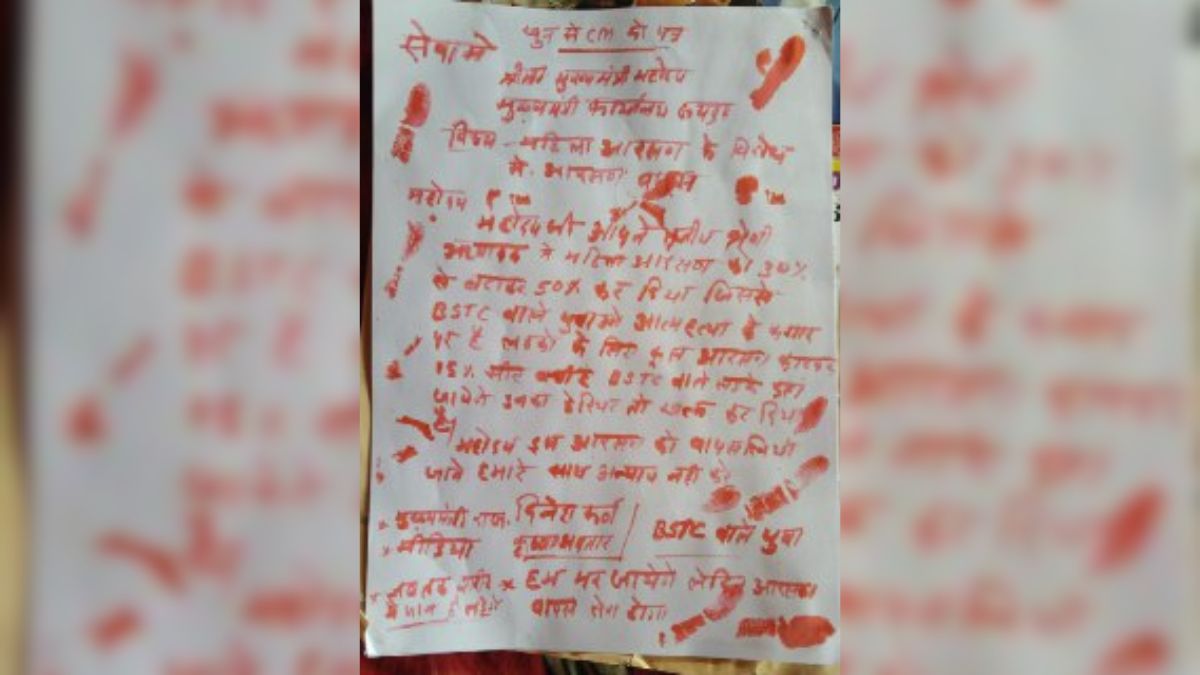 खुन से CM को पत्र
सेवामे
श्रीमान मुख्यमंत्री महोदय
मुख्यमंत्री कार्यालय जयपुर
विषय - महिला आरक्षण के विरोध
मे आरक्षण वापस
महोदय
महोदय जी आपने तृतीय श्रेणी
अध्यापक मे महिला आरक्षण को 30%
से बढाकर 50% कर दिया जिससे
BSTC वाले युवाओ आत्महत्या के कगार
पर है लडको के लिए कुल आरक्षण काटकर
15% सीट BSTC वाले लडके कहा
जायेगे इनका केरियर तो खत्म कर दिया
है।
महोदय इस आरक्षण को वापस लिया
जावे हमारे साथ अन्याय नही करे
मुख्यमंत्री राज.
मीडिया
दिनेश
BSTC वाले युवा
जब तक शरीर
मे जान है लडेगे
× हम मर जायेगे लेकिन आरक्षण
वापस लेना होगा